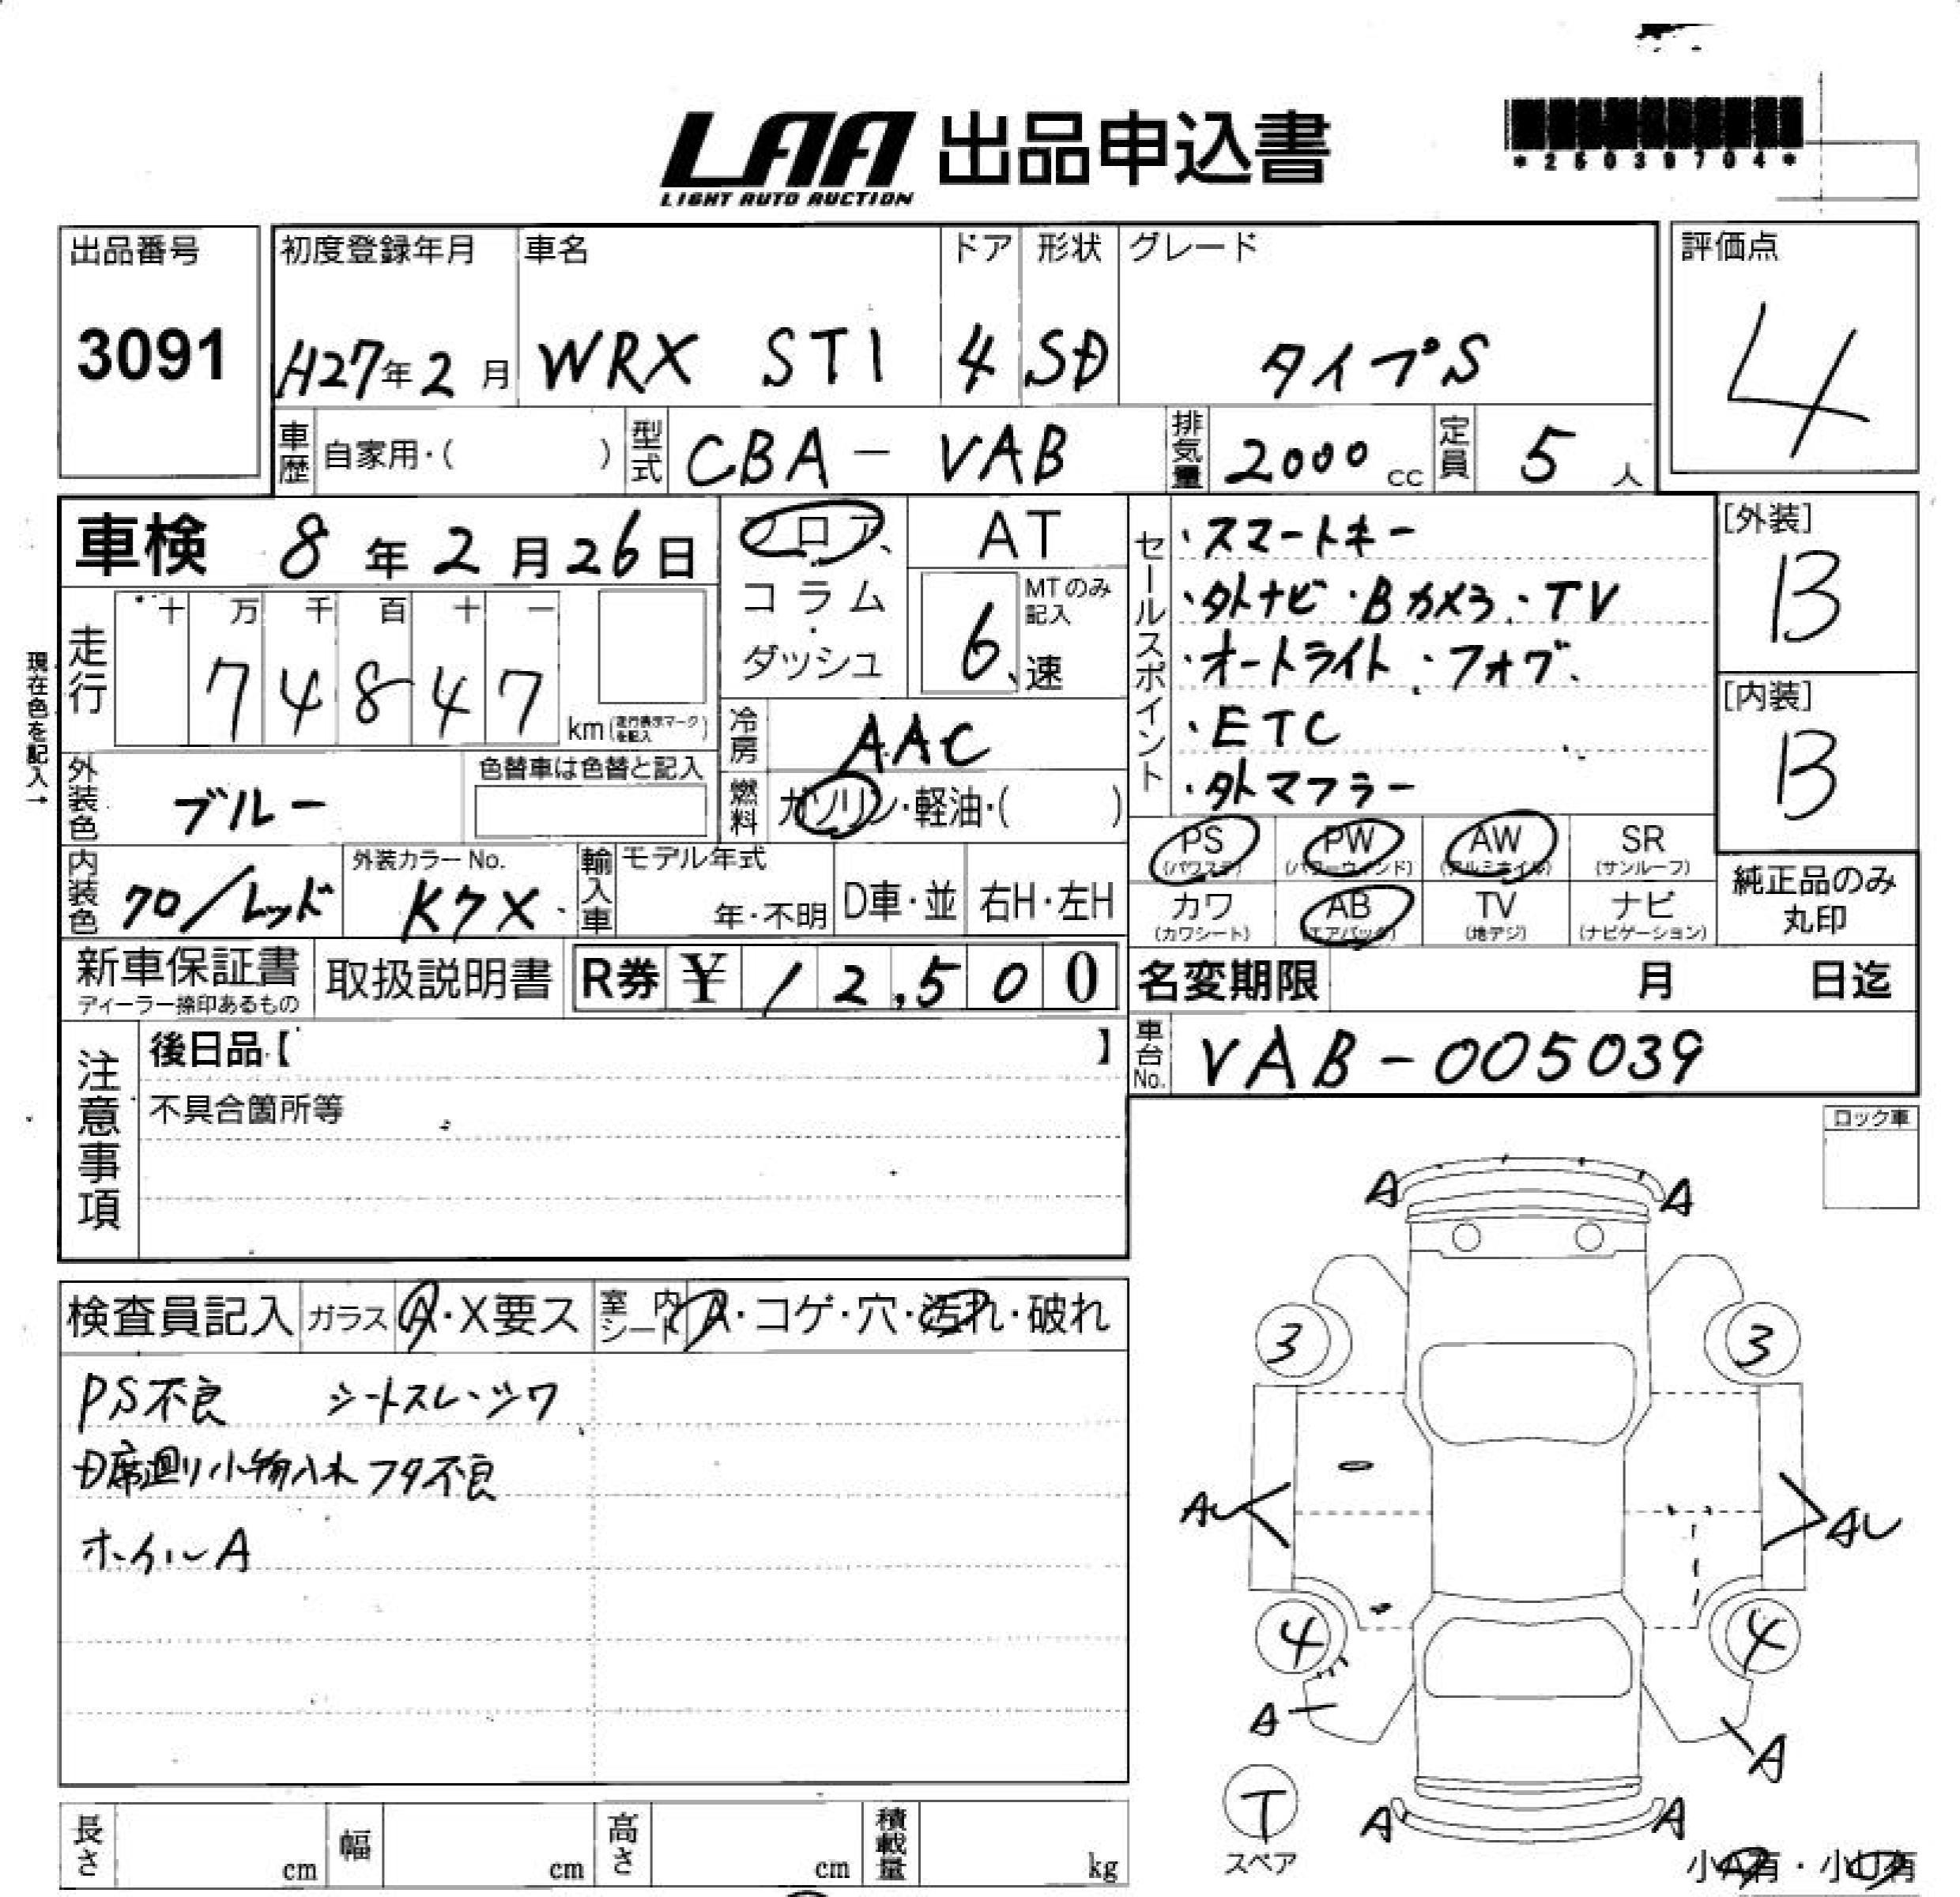 LAA 出品申込書
LIGHT AUTO AUCTION
*25039704*
出品番号
3091
初度登録年月
H27年2月
車名
WRX STI
ドア
4
形状
SD
グレード
タイプS
評価点
4
車歴 自家用・( )
型式 CBA-VAB
排気量 2000 cc
定員 5 人
車検 8年2月26日
フロア、
コラム
・
ダッシュ
AT
MTのみ記入
6、速
走行
十 万 千 百 十 一
7 4 8 4 7
km(走行表示マークを記入)
現在色を記入→
外装色 ブルー
色替車は色替と記入
冷房 AAC
燃料 ガソリン・軽油・( )
セールスポイント
・スマートキー
・外ナビ・Bカメラ・TV
・オートライト・フォグ
・ETC
・外マフラー
[外装]
B
[内装]
B
内装色 クロ/レッド
外装カラーNo.
K7X
輸入車
モデル年式
年・不明
D車・並
右H・左H
PS (パワステ)
PW (パワーウインド)
AW (アルミホイル)
SR (サンルーフ)
カワ (カワシート)
AB (エアバッグ)
TV (地デジ)
ナビ (ナビゲーション)
純正品のみ
丸印
新車保証書
ディーラー捺印あるもの
取扱説明書
R券 ¥12,500
名変期限 月 日迄
車台No. VAB-005039
注意事項
後日品【 】
不具合箇所等
ロック車
検査員記入
ガラス A・X要ス
室内シート A・コゲ・穴・汚れ・破れ
PS不良 シートスレ・シワ
D席廻り小物入れフタ不良
ホイルA
A A
3 3
AU AU
4 4
A A
T
スペア
A A
小A有・小U有
長さ cm
幅 cm
高さ cm
積載量 kg